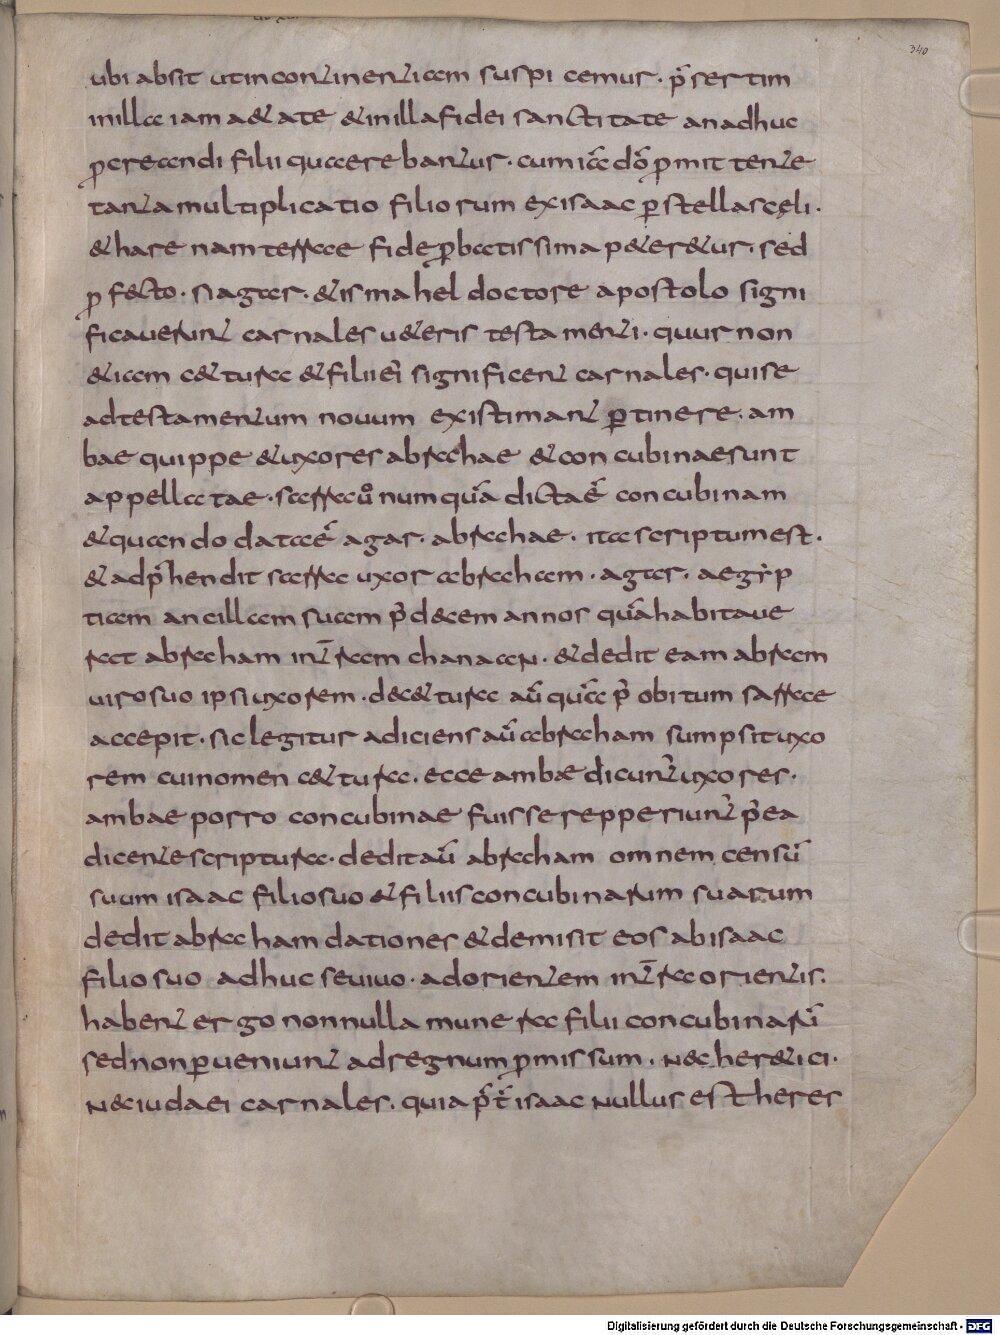 340
ubi absit ut incontinentiam suspi cemus. p̄sertim
inilla iam a&ate &inilla fidei sanctitate anadhuc
ꝓcreandi filii quaerebantur. cum iā dō ꝓmittente
tanta multiplicatio filiorum exisaac ꝑ stellas cęli.
&hare nam terrae fide ꝓbatissima p&er&ur. sed
ꝓ fecto. si agar. &ismahel doctore apostolo signi
ficauerunt carnales u&eris testamenti. quur non
&iam c&tura &filii ei significent carnales. qui se
ad testamentum nouum existimant ꝑtinere. am
bae quippe &uxores abrahae &concubinae sunt
appellatae. sarra u͛o numquā dicta ē concubinam
&quando data ē agar. abrahae. ita scriptum est.
&adp̄hendit sarra uxor abraham. agar. aegẏp
tiam ancillam suam p̓ decem annos quā habitaue
rat abraham int̄ ram chanaan. &dedit eam abram
uiro suo ipsi uxorem. dec&tura aū quā p̓ obitum sarrae
accepit. sic legitur adiciens aū abraham sumpsit uxo
rem cui nomen c&tura. ecce ambae dicunt᷑ uxores.
ambae porro concubinae fuisse repperiunt᷑ p̓ ea
dicente scriptura. dedit aū abraham omnem censū
suum isaac filio suo &filiis concubinarum suarum
dedit abraham dationes &demisit eos abisaac
filio suo adhuc se uiuo. ad orientem int̄ ra orientis.
habent ergo nonnulla munera filii concubinarū
sed non ꝑueniunt ad regnum ꝓmissum. nec her&ici.
nec iudaei carnales. quia p̄t̄ isaac nullus est heres
Digitalisierung gefördert durch die Deutsche Forschungsgemeinschaft - DFG